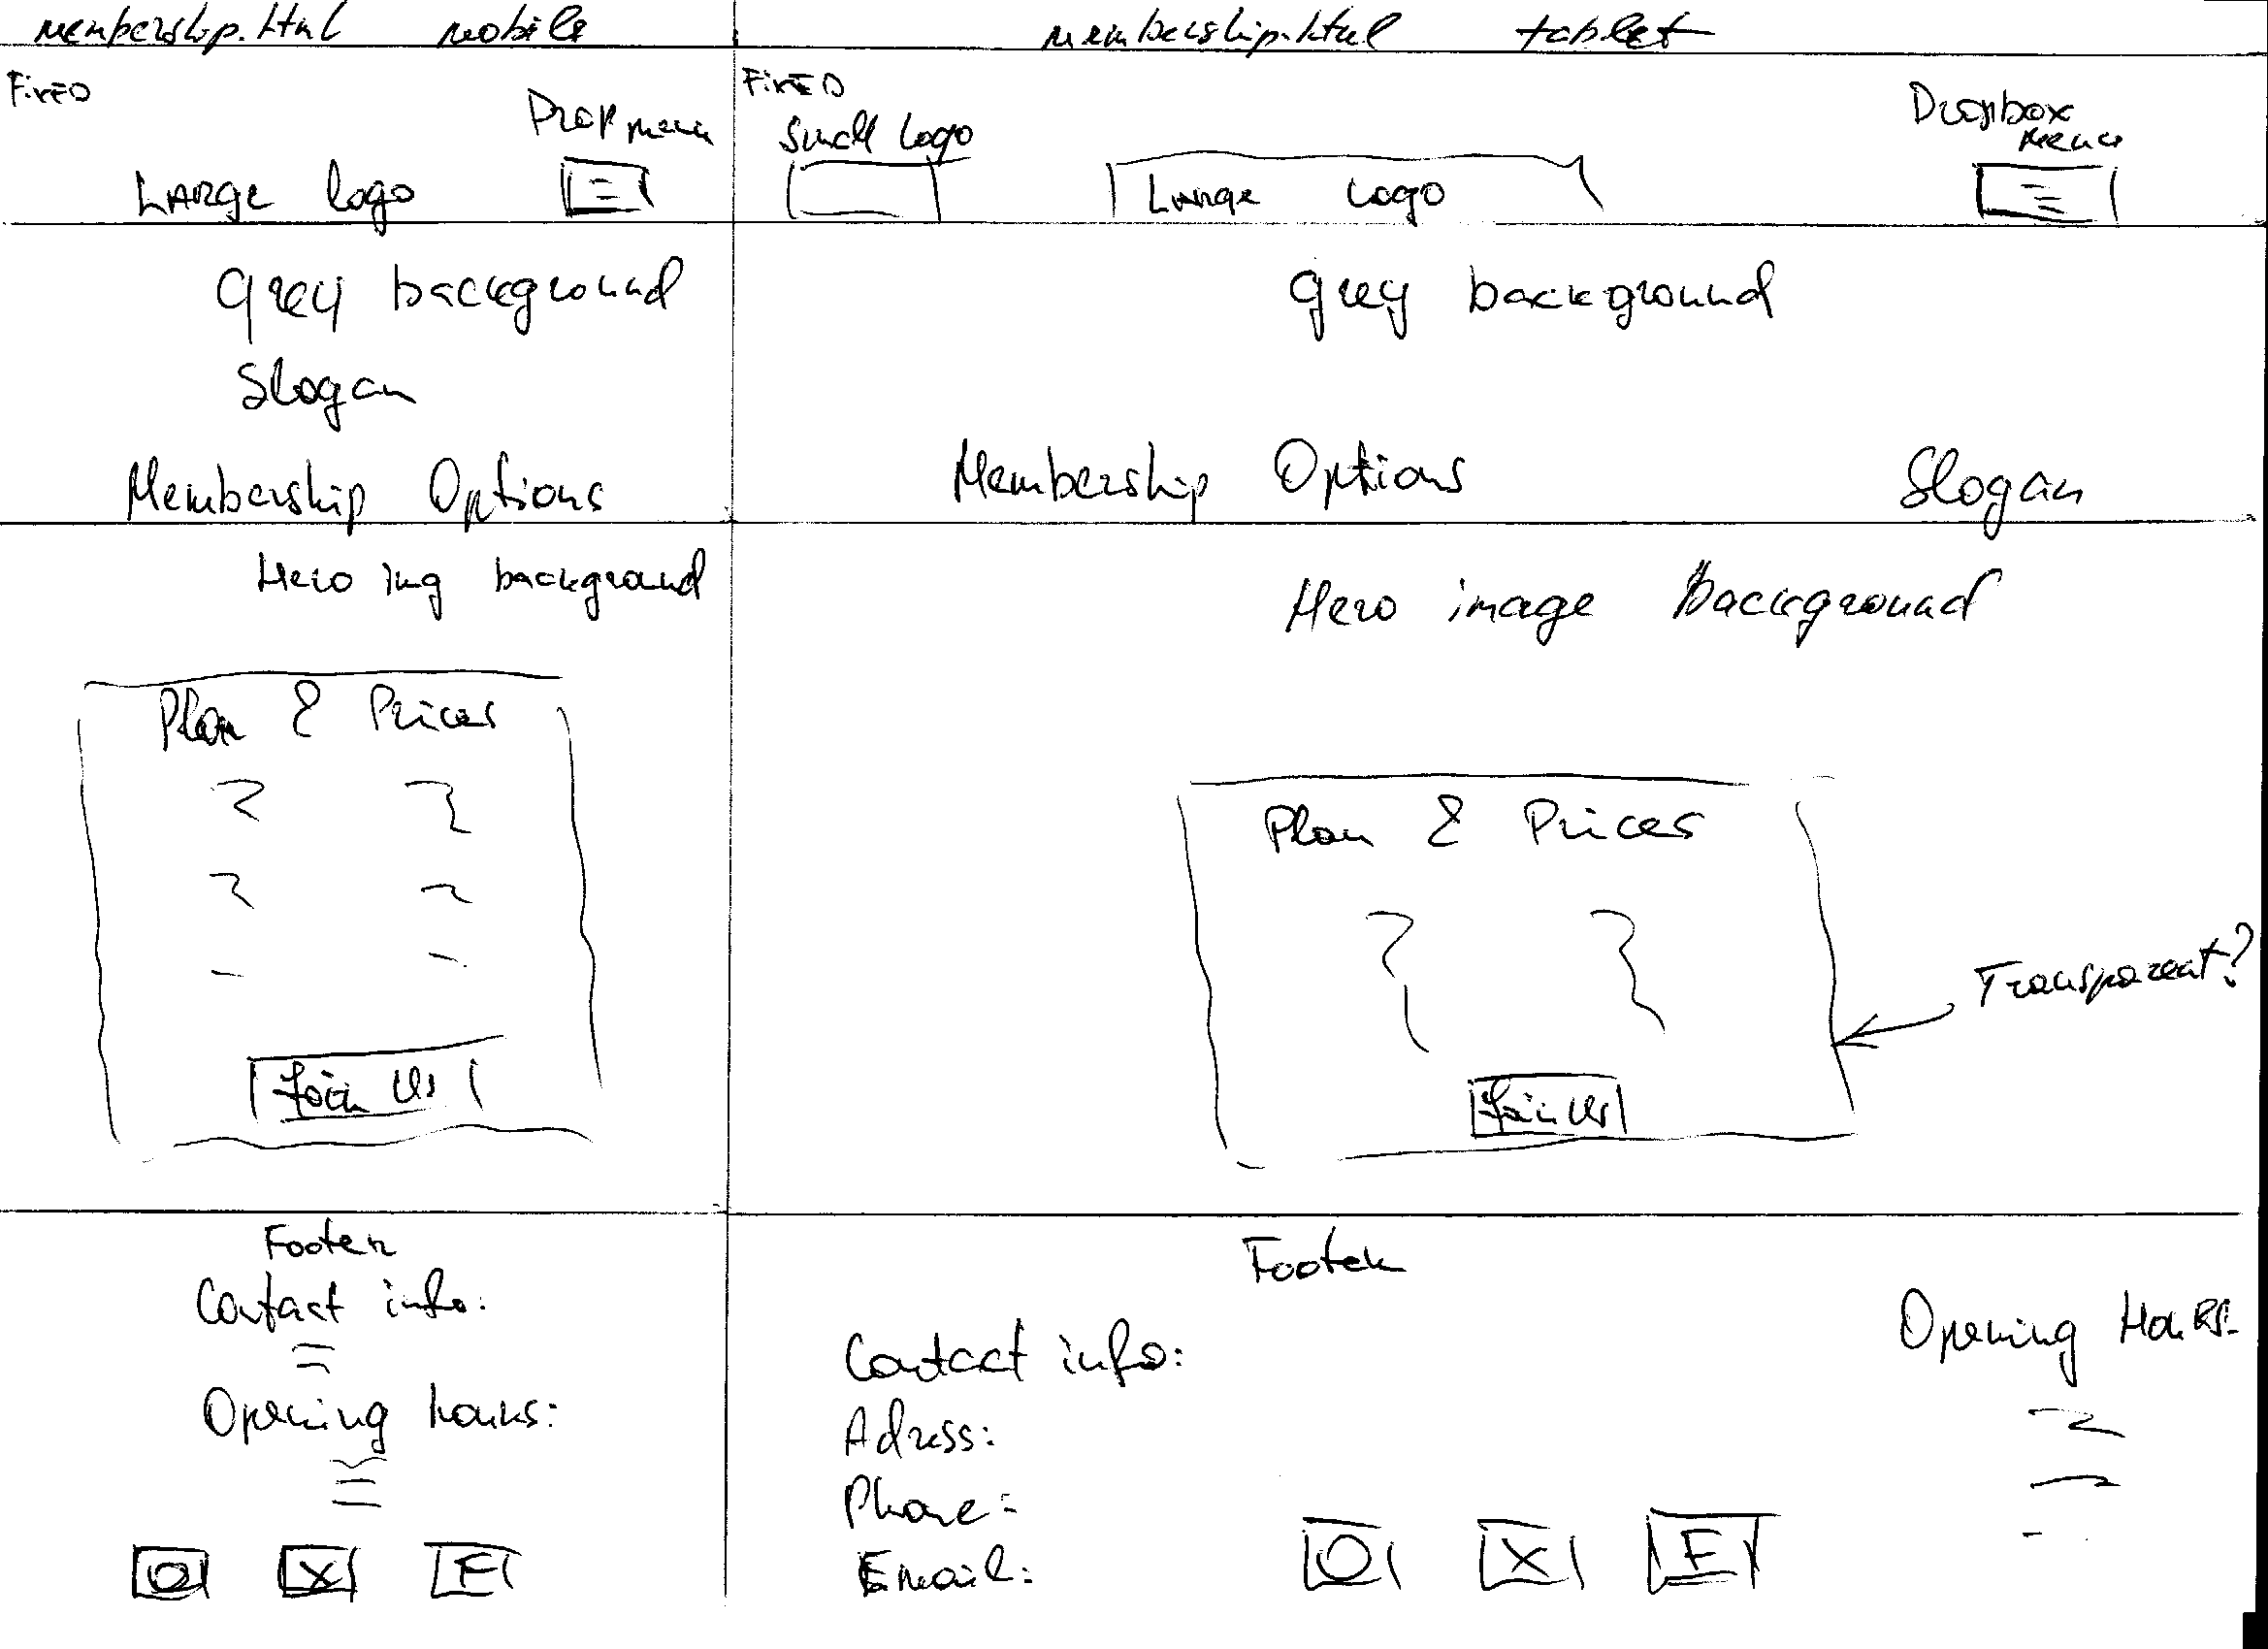 membership.html mobile
FixED
Drop menu
LARge logo
Grey background
Slogan
Membership Options
Hero img background
Plan & Prices
Join Us
Footer
Contact info:
Opening hours:
O X F
membership.html tablet
FixED
Small Logo
Large Logo
Dropbox
Menu
Grey background
Membership Options Slogan
Hero image Background
Plan & Prices
Transparent?
Join Us
Footer
Contact info:
Opening HouRS:
Adress:
Phone:
Email:
O X F